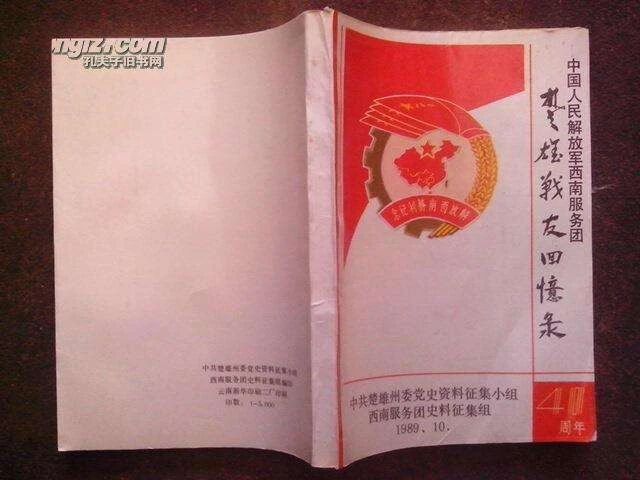 ongfz.com
孔夫子旧书网
中国人民解放军西南服务团
楚雄战友回憶录
解放西南胜利纪念
中共楚雄州委党史资料征集小组
西南服务团史料征集组
1989、10.
40
周年
中共楚雄州委党史资料征集小组
西南服务团史料征集组编印
云南新华印刷二厂印刷
印数：1—5,000